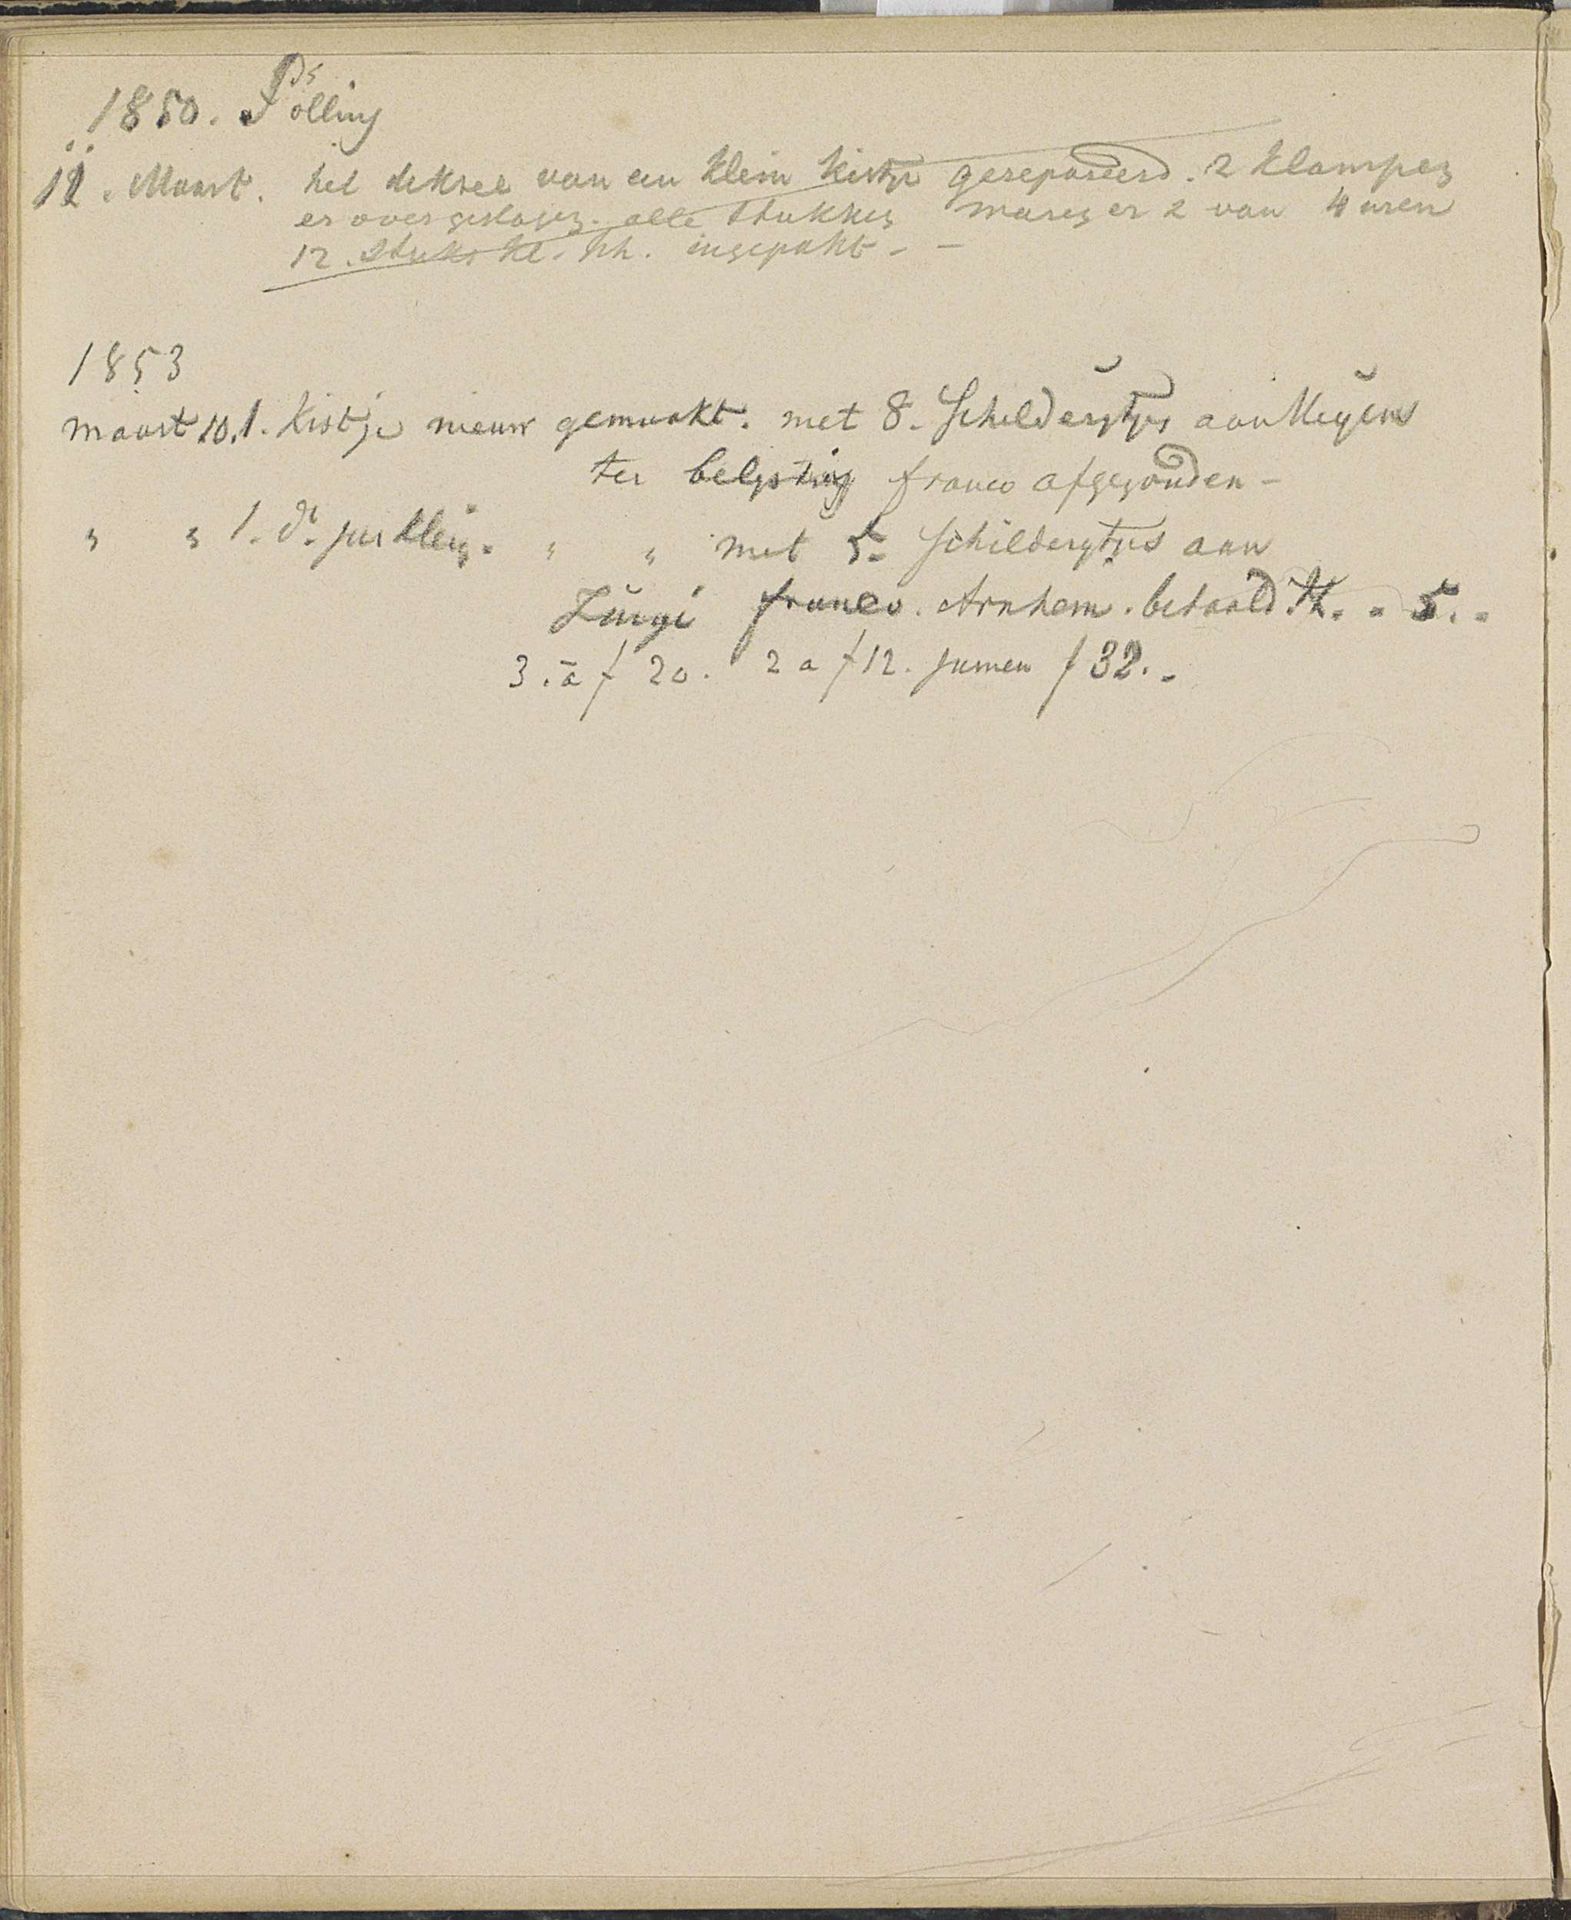 1850. Polling
11. Maart. het deksel van een klein kistje gerepareerd. 2 klampen
er over geslagen. alle stukken waren er 2 van 4 uren
12. stuks kl. sch. ingepakt - -
1853
maart 10. 1. kistje nieuw gemaakt. met 8. schilderytjes aan Meyens
ter belysting franco afgezonden -
" " 1. do klein. " " met 5. schilderytjes aan
franco. Arnhem. betaald. 5. -
3. à f 20. 2 a f 12. samen f 32. -